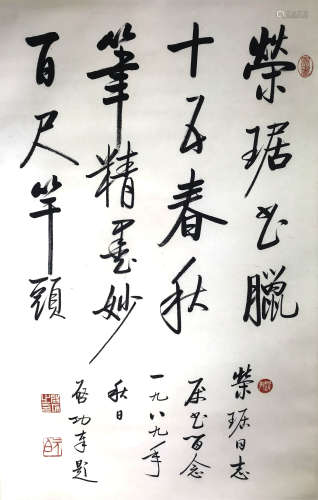 榮琚書臘
十五春秋
筆精墨妙
百尺竿頭
榮琚同志
属書留念
一九八九年
秋日
啟功奉題